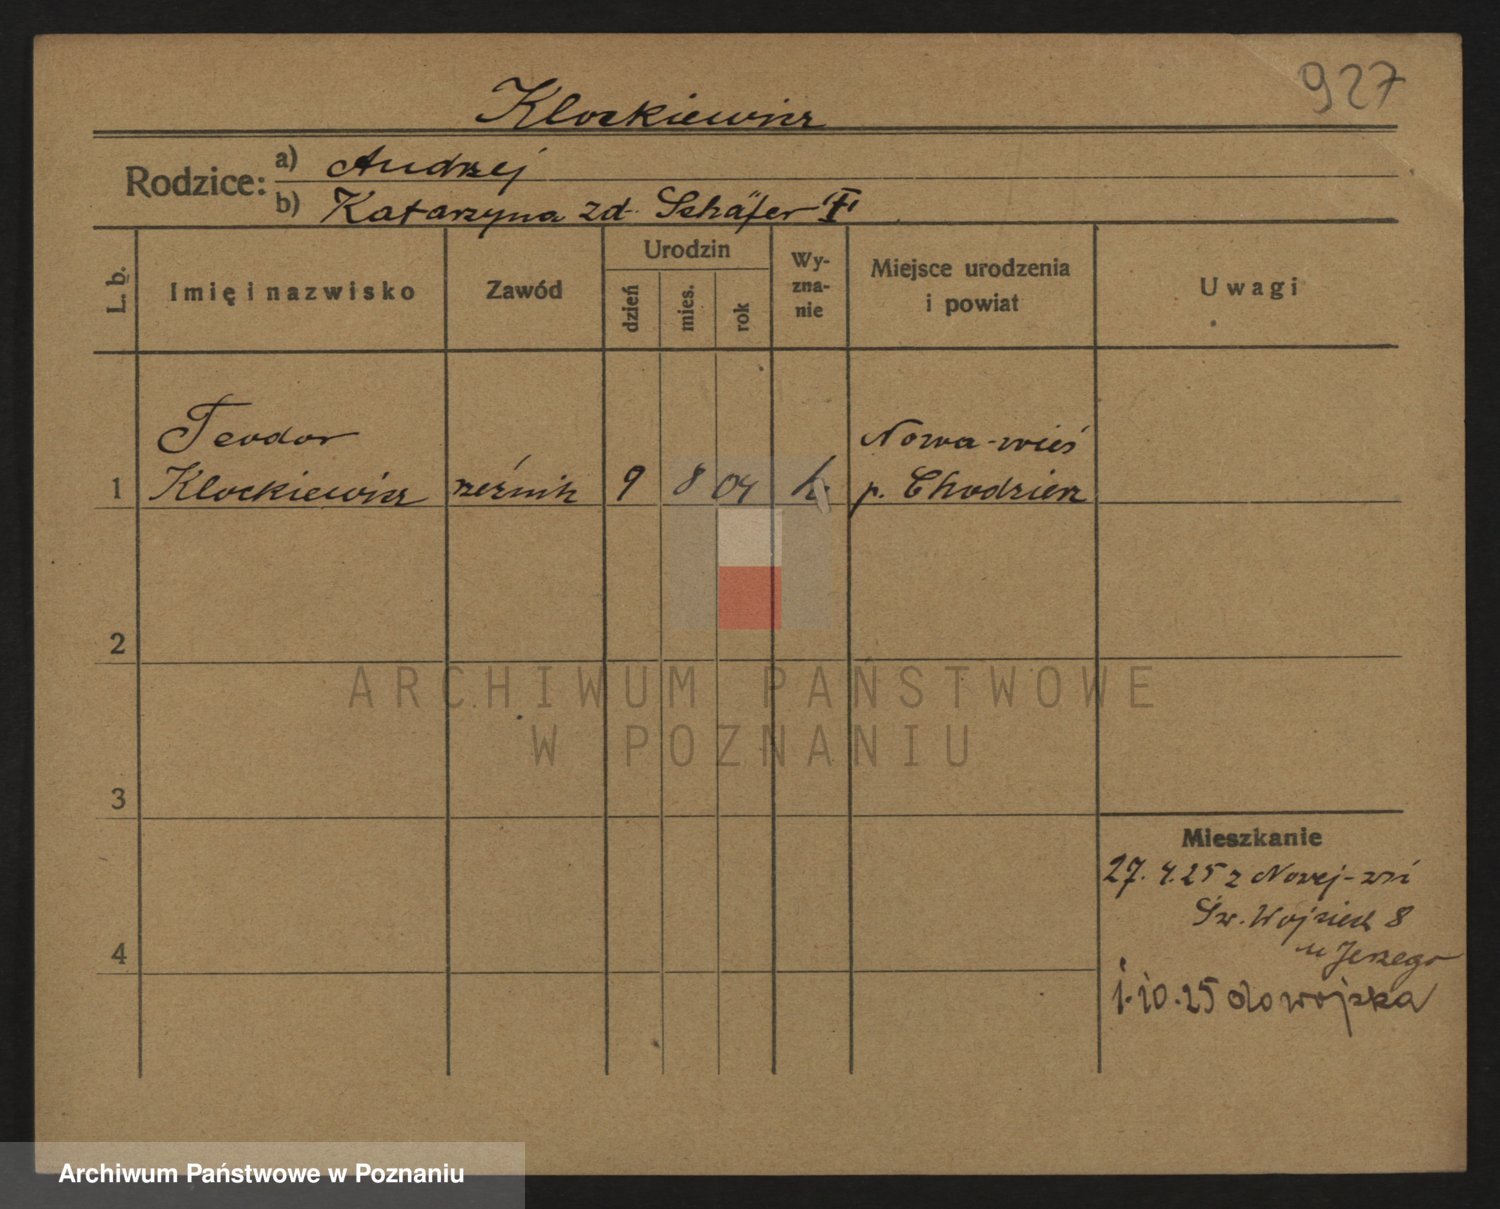 927
Klockiewicz
Rodzice: a) Andrzej
b) Katarzyna zd. Schäfer
L. b.
Imię i nazwisko
Zawód
Urodzin
dzień
mies.
rok
Wy-
zna-
nie
Miejsce urodzenia
i powiat
Uwagi
Teodor
Nowa-wieś
1 Klockiewicz rzeźnik 9 8 04 k. p. Chodzież
2
3
4
Mieszkanie
27. 4. 25 z Nowej-wsi
Św. Wojciech 8
u Jerzego
1. 10. 25 do wojska
ARCHIWUM PAŃSTWOWE
W POZNANIU
Archiwum Państwowe w Poznaniu